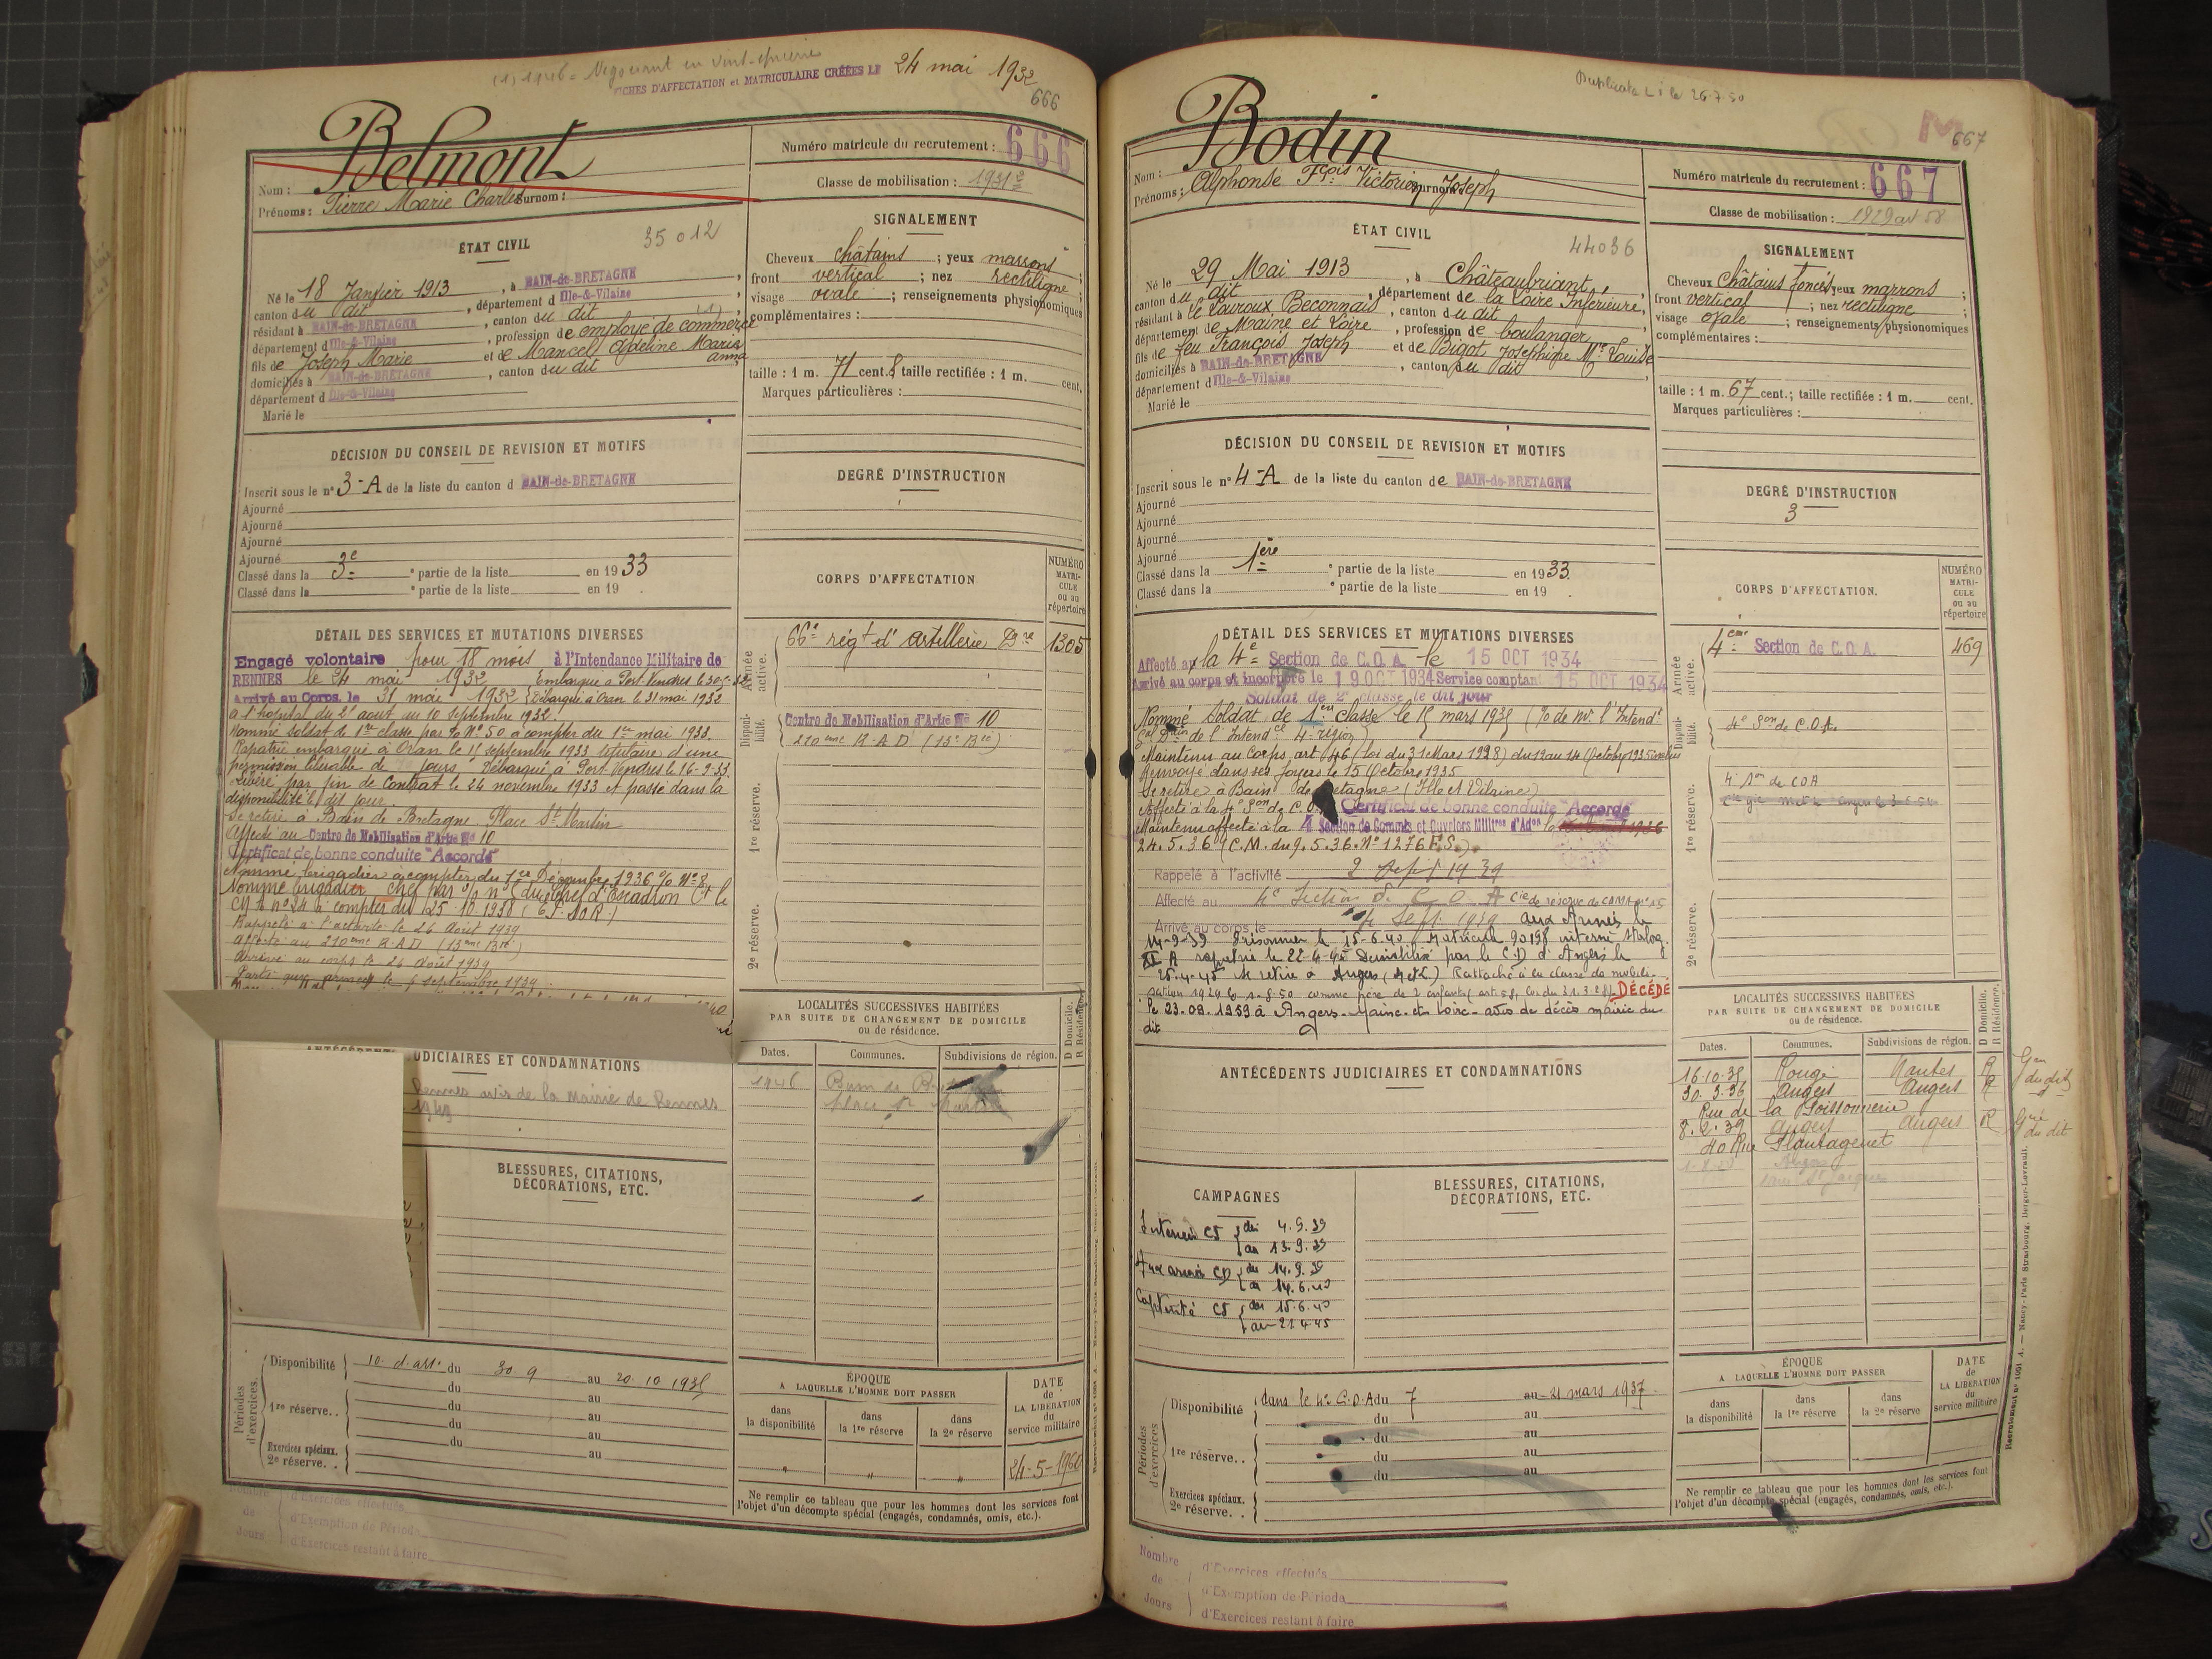 (1) 1946 = Negociant en vins-épicerie
FICHES D'AFFECTATION et MATRICULAIRE CRÉÉES LE 24 mai 1932
666
Belmont
Nom :
Prénoms : Pierre Marie Charles Surnom :
Numéro matricule du recrutement : 666
Classe de mobilisation : 1931
ÉTAT CIVIL
35012
Né le 18 Janvier 1913, à BAIN-de-BRETAGNE,
canton du dit, département d Ille-&-Vilaine,
résidant à BAIN-de-BRETAGNE, canton du dit (1)
département d Ille-&-Vilaine, profession de employé de commerce
fils de Joseph Marie et de Marcel Adeline Maria anna
domiciliés à BAIN-de-BRETAGNE, canton du dit
département d Ille-&-Vilaine
Marié le
SIGNALEMENT
Cheveux châtains ; yeux marrons ;
front vertical ; nez rectiligne ;
visage ovale ; renseignements physionomiques
complémentaires :
taille : 1 m. 71 cent. ; taille rectifiée : 1 m. cent.
Marques particulières :
DÉCISION DU CONSEIL DE REVISION ET MOTIFS
Inscrit sous le n° 3-A de la liste du canton d BAIN-de-BRETAGNE
Ajourné
Ajourné
Ajourné
Ajourné
Classé dans la 3e partie de la liste en 1933
Classé dans la ° partie de la liste en 19 .
DEGRÉ D'INSTRUCTION
CORPS D'AFFECTATION
NUMÉRO MATRI-CULE ou au répertoire
DÉTAIL DES SERVICES ET MUTATIONS DIVERSES
Engagé volontaire pour 18 mois à l'Intendance Militaire de
RENNES le 24 mai 1932 Embarqué à Port Vendres le 30-5-32
Arrivé au Corps le 31 mai 1932 Débarqué à Oran le 31 mai 1932
à l'hopital du 2 aout au 10 Septembre 1932.
Nommé Soldat de 1re classe par % N° 50 à compter du 1er mai 1933.
Rapatrié embarqué à Oran le 15 septembre 1933 titulaire d'une
permission libérable de jours Débarqué à Port Vendres le 16-9-33.
Libéré par fin de Contrat le 24 novembre 1933 et passé dans la
disponibilité le dit jour.
Se retire à Bain de Bretagne Place St Martin
Affecté au Centre de Mobilisation d'Artie N° 10
Certificat de bonne conduite "Accordé"
Nommé brigadier à compter du 1er Décembre 1936 % N° 8.
Nommé brigadier chef par % n° 5 du Chef d'Escadron Ct le
CM A n° 24 à compter du 25.10.1938
Rappelé à l'activité le 26 Août 1939
affecté au 210eme R.A.D (13eme Bie)
arrivé au corps le 26 Août 1939
Parti aux armées le 6 septembre 1939
Armée active.
66e régt d'artillerie 1305
Disponi-bilité.
Centre de Mobilisation d'Artie N° 10
210eme R.A.D (13e Bie)
1re réserve.
2e réserve.
LOCALITÉS SUCCESSIVES HABITÉES
PAR SUITE DE CHANGEMENT DE DOMICILE
ou de résidence.
D Domicile. R Résidence.
Dates. Communes. Subdivisions de région.
1946 Bain de Bretagne
place St Martin
ANTÉCÉDENTS JUDICIAIRES ET CONDAMNATIONS
Rennes avis de la Mairie de Rennes
1949
BLESSURES, CITATIONS,
DÉCORATIONS, ETC.
Périodes d'exercices.
Disponibilité du 30 9 au 20.10.1935
du au
1re réserve.. du au
du au
du au
Exercices spéciaux. 2e réserve..
ÉPOQUE
A LAQUELLE L'HOMME DOIT PASSER
dans la disponibilité
dans la 1re réserve
dans la 2e réserve
DATE de LA LIBÉRATION du service militaire
24-5-1960
Ne remplir ce tableau que pour les hommes dont les services font
l'objet d'un décompte spécial (engagés, condamnés, omis, etc.).
Nombre de Jours
d'Exercices effectués
d'Exemption de Période
d'Exercices restant à faire
Duplicata L i le 26.7.50
M
667
Bodin
Nom :
Prénoms : Alphonse Fçois Victorien Surnom : Joseph
Numéro matricule du recrutement : 667
Classe de mobilisation : 1929 art 58
ÉTAT CIVIL
44036
Né le 29 Mai 1913, à Châteaubriant,
canton du dit, département de la Loire Inférieure,
résidant à Le Louroux Beconnais, canton du dit
département de Maine et Loire, profession de boulanger
fils de feu François Joseph et de Bigot Joséphine Mie Louise
domiciliés à BAIN-de-BRETAGNE, canton du dit
département d Ille-&-Vilaine
Marié le
SIGNALEMENT
Cheveux châtains foncés yeux marrons ;
front vertical ; nez rectiligne ;
visage ovale ; renseignements physionomiques
complémentaires :
taille : 1 m. 67 cent.; taille rectifiée : 1 m. cent.
Marques particulières :
DÉCISION DU CONSEIL DE REVISION ET MOTIFS
Inscrit sous le n° 4-A de la liste du canton de BAIN-de-BRETAGNE
Ajourné
Ajourné
Ajourné
Ajourné
Classé dans la 1ère partie de la liste en 1933.
Classé dans la ° partie de la liste en 19 .
DEGRÉ D'INSTRUCTION
3
CORPS D'AFFECTATION.
NUMÉRO MATRI-CULE ou au répertoire
DÉTAIL DES SERVICES ET MUTATIONS DIVERSES
Affecté à la 4e Section de C.O.A. le 15 OCT 1934
Arrivé au corps et incorporé le 19 OCT 1934 Service comptant 15 OCT 1934
Soldat de 2e classe le dit jour
Nommé Soldat de 1ère classe le 15 mars 1935 (% de Mr l'Intendt
de l'Intendce 4e région)
Maintenu au Corps art 46 (loi du 31 Mars 1928) du 12 au 14 Octobre 1935 inclus
Renvoyé dans ses foyers le 15 Octobre 1935
Se retire à Bain de Bretagne (Ille et Vilaine)
Affecté à la 4e Son de C.O.A. Certificat de bonne conduite "Accordé"
Maintenu affecté à la 4 Section de Commis et Ouvriers Militres d'Adon
24.5.36 (C.M. du 9.5.36. N° 1276 E.S.).
Rappelé à l'activité 2 Sept 1939
Affecté au 4e Section de C O A Cie de réserve de COMA n° 15
Arrivé au corps le 4 Sept. 1939 aux Armées le
14-9-39 Prisonnier le 15-6-40 Matricule 90198 interné Stalag
XI A rapatrié le 22-4-45 Démobilisé par le C.D d'Angers le
25.4.45 se retire à Angers (M & L) Rattaché à la classe de mobili-
sation 1929 le 1-8-50 comme père de 2 enfants (art 58, loi du 31.3.28) DÉCÉDÉ
le 23.09.1959 à Angers-Maine-et-Loire-avis de décès mairie du
dit
Armée active.
4eme Section de C.O.A. 469
Disponi-bilité.
4e Son de C.O.A.
1re réserve.
4e Son de COA
2e réserve.
LOCALITÉS SUCCESSIVES HABITÉES
PAR SUITE DE CHANGEMENT DE DOMICILE
ou de résidence.
D Domicile. R Résidence.
Dates. Communes. Subdivisions de région.
16.10.35 Rougé Nantes R
30.3.36 Angers Angers R
Rue de la Poissonnerie
8.2.39 Angers Angers R
40 Rue Plantagenet
Angers
ANTÉCÉDENTS JUDICIAIRES ET CONDAMNATIONS
CAMPAGNES
Intérieur CS du 4.9.39
au 13.9.39
Aux armées CD du 14.9.39
au 14.6.40
Captivité CS du 15.6.40
au 21.4.45
BLESSURES, CITATIONS,
DÉCORATIONS, ETC.
Périodes d'exercices
Disponibilité dans le 4e C.O.A du 7 au 21 mars 1937.
du au
du au
1re réserve.. du au
du au
Exercices spéciaux. 2e réserve. .
ÉPOQUE
A LAQUELLE L'HOMME DOIT PASSER
dans la disponibilité
dans la 1re réserve
dans la 2e réserve
DATE de LA LIBÉRATION du service militaire
Ne remplir ce tableau que pour les hommes dont les services font
l'objet d'un décompte spécial (engagés, condamnés, omis, etc.).
Nombre de Jours
d'Exercices effectués
d'Exemption de Période
d'Exercices restant à faire